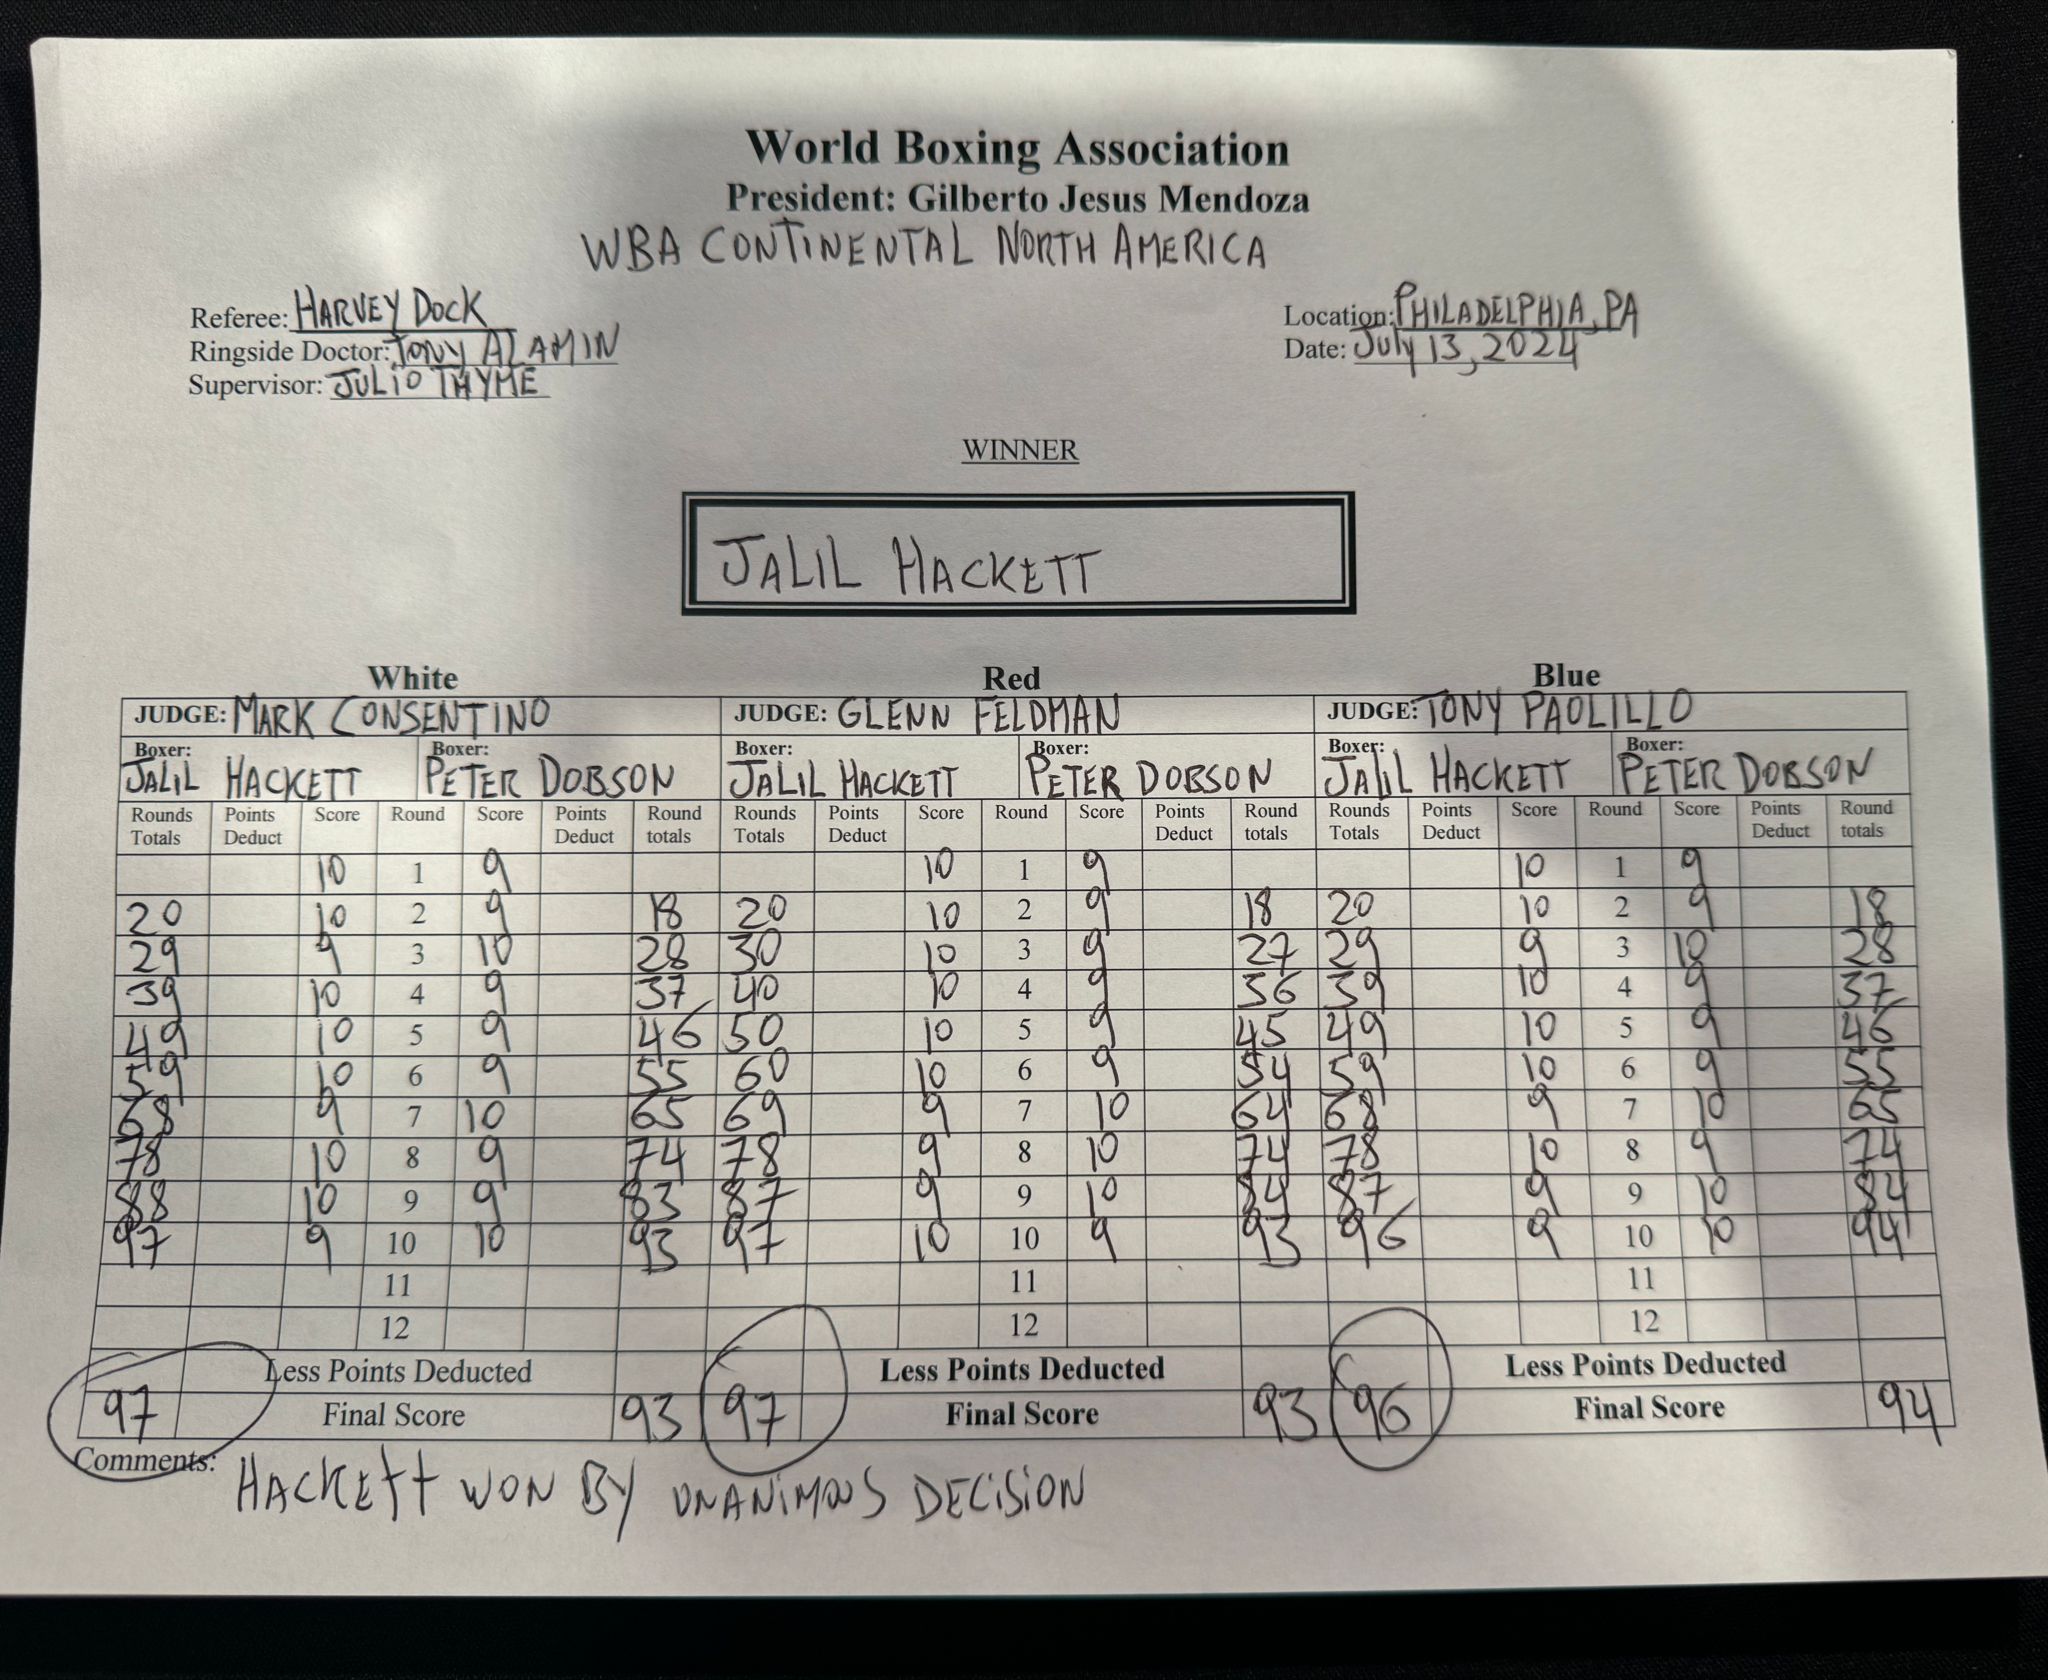 World Boxing Association
President: Gilberto Jesus Mendoza
WBA CONTINENTAL NORTH AMERICA
Referee: HARVEY DOCK
Ringside Doctor: TONY ALAMIN
Supervisor: JULIO THYME
Location: PHILADELPHIA, PA
Date: July 13, 2024
WINNER
JALIL HACKETT
White Red Blue
JUDGE: MARK CONSENTINO JUDGE: GLENN FELDMAN JUDGE: TONY PAOLILLO
Boxer: Boxer: Boxer: Boxer: Boxer: Boxer:
JALIL HACKETT PETER DOBSON JALIL HACKETT PETER DOBSON JALIL HACKETT PETER DOBSON
Rounds Points Score Round Score Points Round Rounds Points Score Round Score Points Round Rounds Points Score Round Score Points Round
Totals Deduct Deduct totals Totals Deduct Deduct totals Totals Deduct Deduct totals
10 1 9 10 1 9 10 1 9
20 10 2 9 18 20 10 2 9 18 20 10 2 9 18
29 9 3 10 28 30 10 3 9 27 29 9 3 10 28
39 10 4 9 37 40 10 4 9 36 39 10 4 9 37
49 10 5 9 46 50 10 5 9 45 49 10 5 9 46
59 10 6 9 55 60 10 6 9 54 59 10 6 9 55
68 9 7 10 65 69 9 7 10 64 68 9 7 10 65
78 10 8 9 74 78 9 8 10 74 78 10 8 9 74
88 10 9 9 83 87 9 9 10 84 87 9 9 10 84
97 9 10 10 93 97 10 10 9 93 96 9 10 10 94
11 11 11
12 12 12
Less Points Deducted Less Points Deducted Less Points Deducted
97 Final Score 93 97 Final Score 93 96 Final Score 94
Comments: HACKETT WON BY UNANIMOUS DECISION